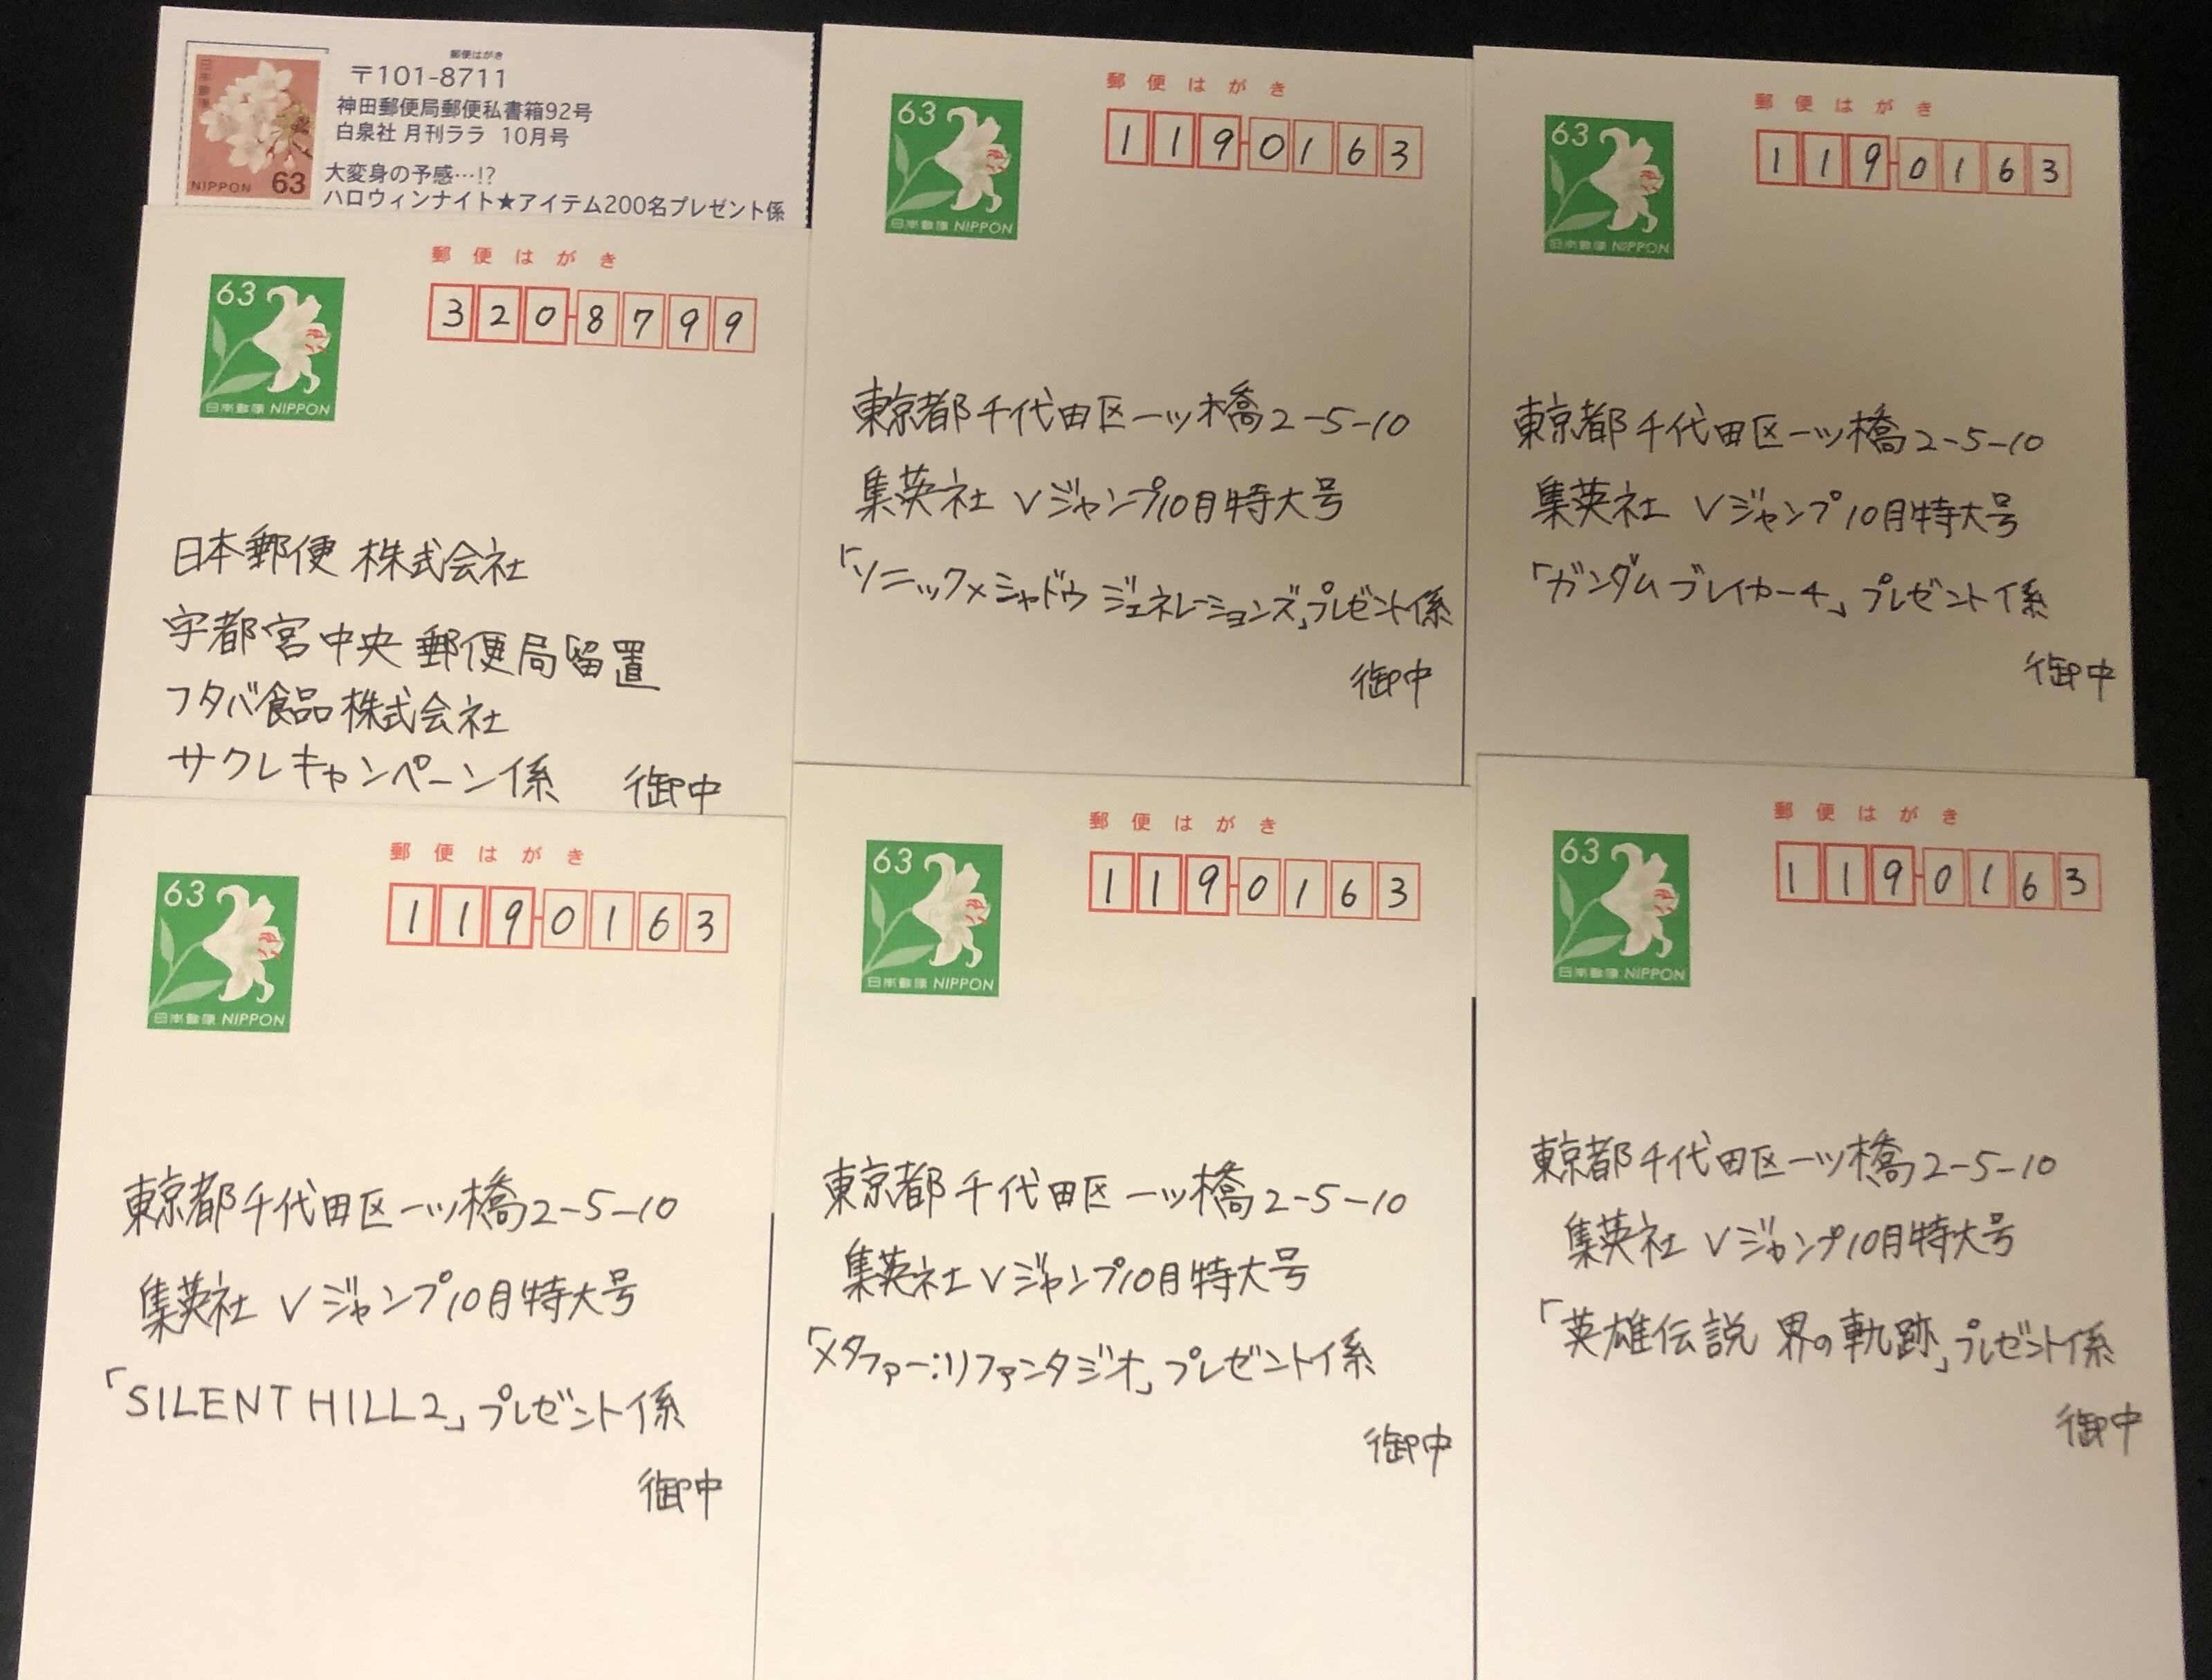 日本郵便
NIPPON 63
郵便はがき
〒101-8711
神田郵便局郵便私書箱92号
白泉社 月刊ララ 10月号
大変身の予感…!?
ハロウィンナイト★アイテム200名プレゼント係
63
日本郵便 NIPPON
郵便はがき
320-8799
日本郵便 株式会社
宇都宮中央郵便局留置
フタバ食品株式会社
サクレキャンペーン係 御中
63
日本郵便 NIPPON
郵便はがき
119-0163
東京都千代田区一ツ橋2-5-10
集英社 Vジャンプ10月特大号
「ソニック×シャドウ ジェネレーションズ」プレゼント係
御中
63
日本郵便 NIPPON
郵便はがき
119-0163
東京都千代田区一ツ橋2-5-10
集英社 Vジャンプ10月特大号
「ガンダムブレイカー4」プレゼント係
御中
63
日本郵便 NIPPON
郵便はがき
119-0163
東京都千代田区一ツ橋2-5-10
集英社 Vジャンプ10月特大号
「SILENT HILL2」プレゼント係
御中
63
日本郵便 NIPPON
郵便はがき
119-0163
東京都千代田区一ツ橋2-5-10
集英社 Vジャンプ10月特大号
「メタファー:リファンタジオ」プレゼント係
御中
63
日本郵便 NIPPON
郵便はがき
119-0163
東京都千代田区一ツ橋2-5-10
集英社 Vジャンプ10月特大号
「英雄伝説 界の軌跡」プレゼント係
御中